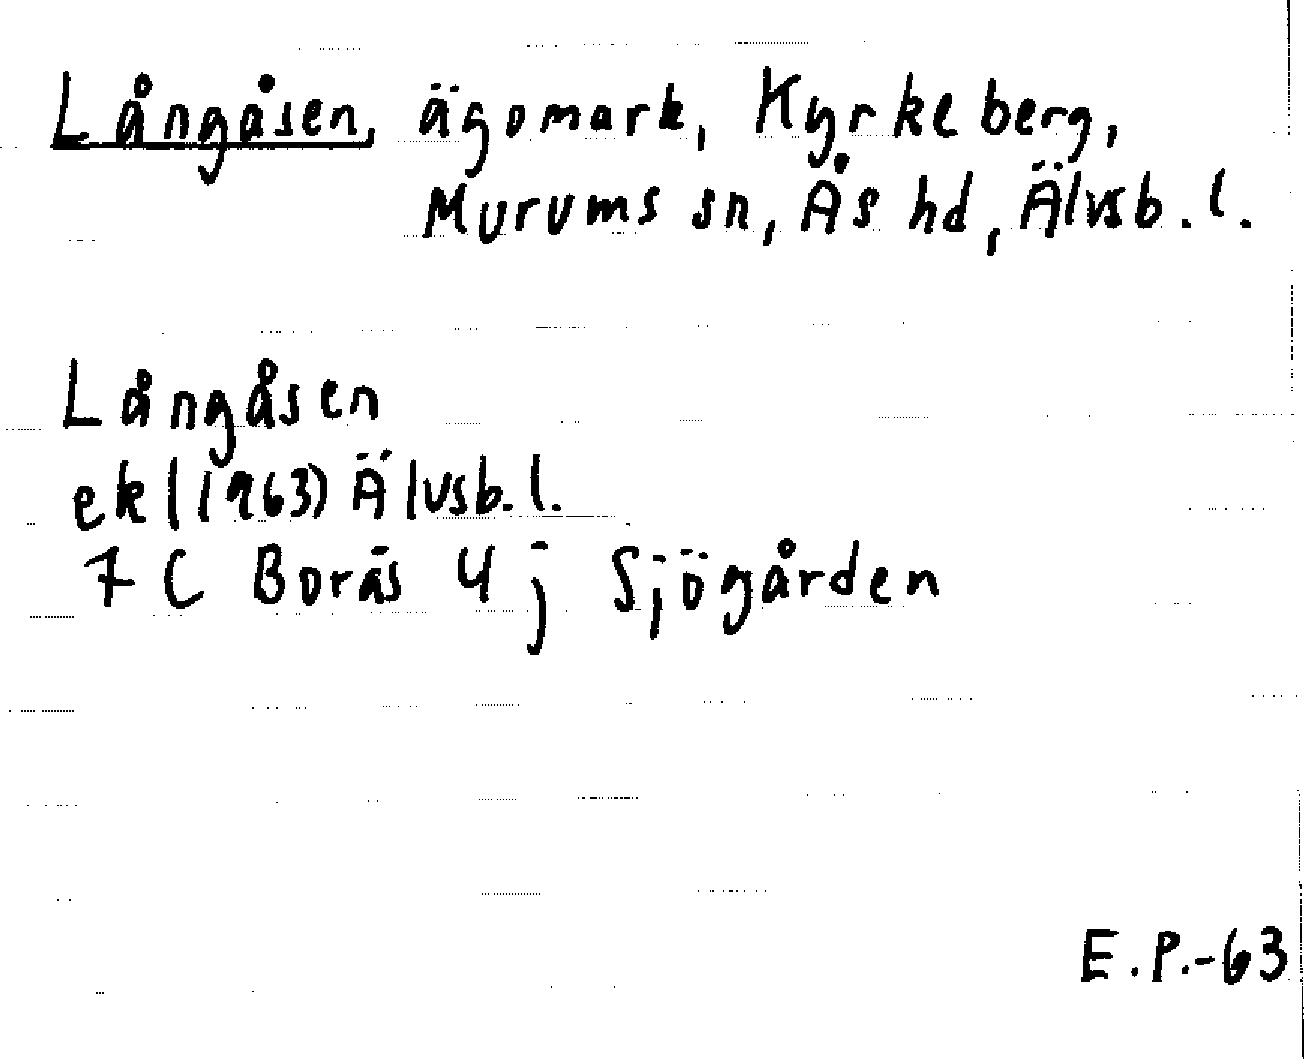 Långåsen, ägomark, Kyrkeberg,
Murums sn, Ås hd, Älvsb. l.
Långåsen
ekl (1963) Älvsb. l.
7 C Borås 4 j Sjögården
E.P.-63